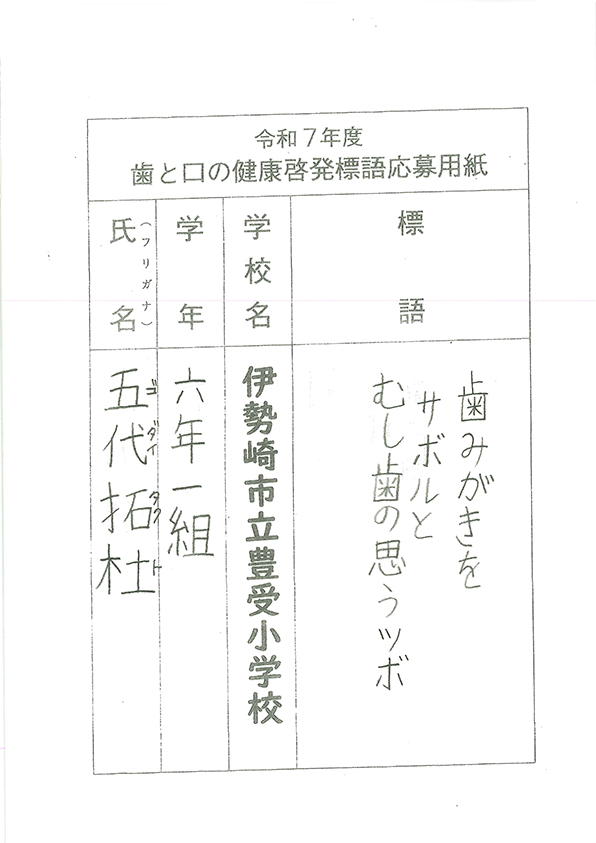 令和7年度
歯と口の健康啓発標語応募用紙
標語
歯みがきを
サボルと
むし歯の思うツボ
学校名
伊勢崎市立豊受小学校
学年
六年一組
氏名
(フリガナ)
五代拓杜
ゴダイタクト